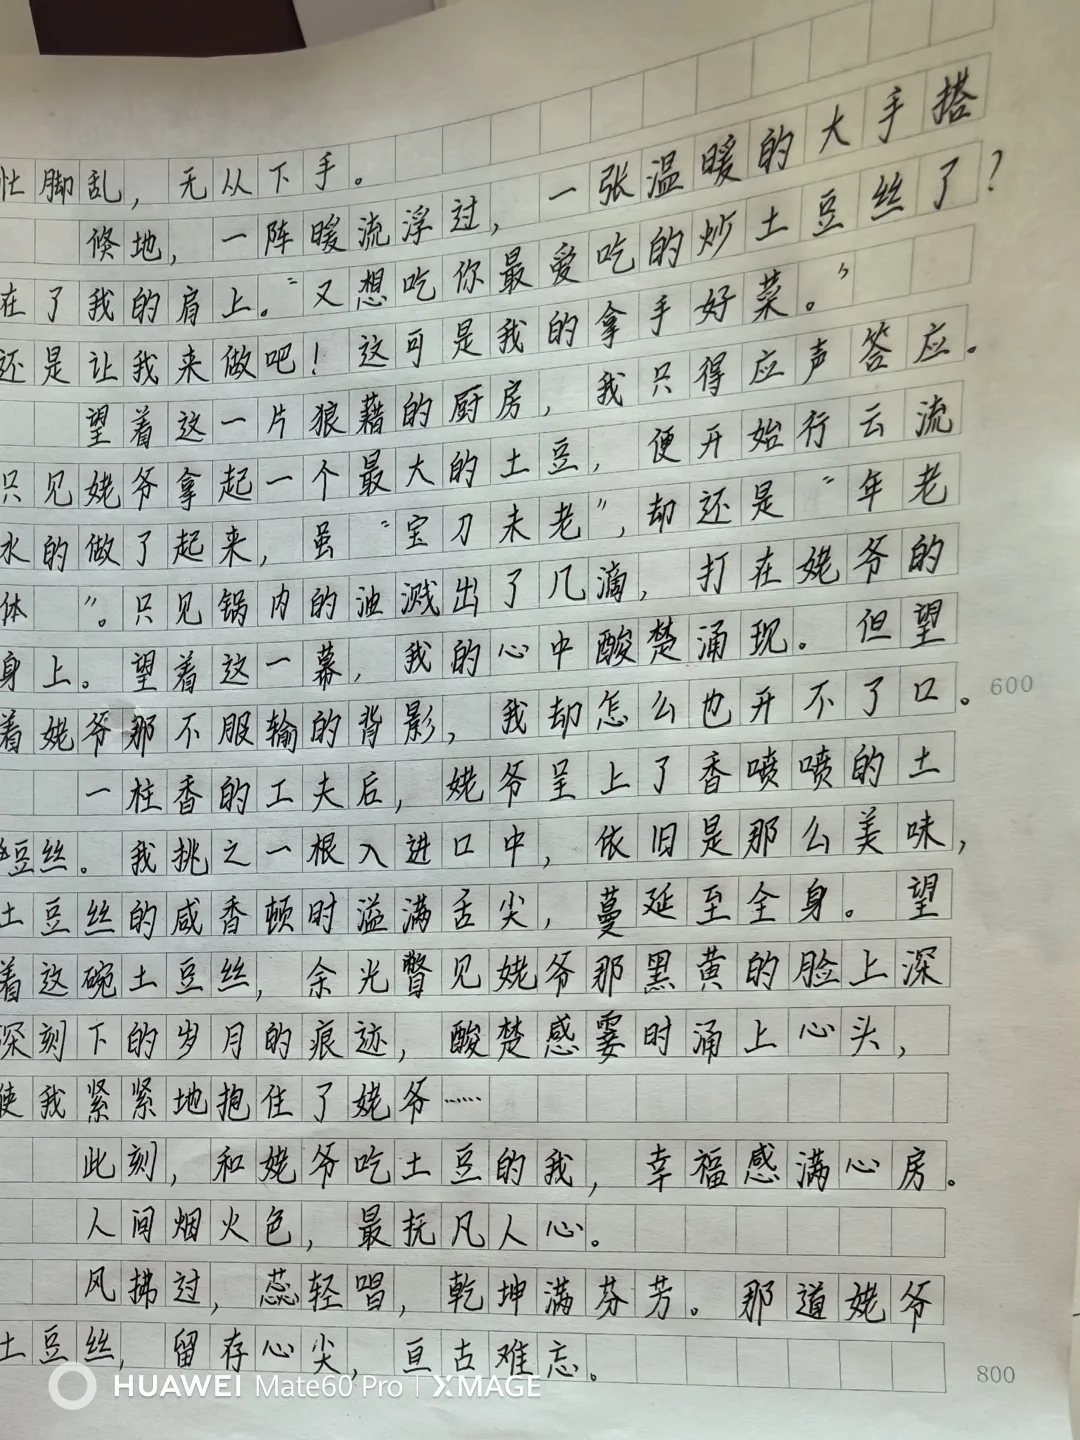 忙脚乱，无从下手。
倏地，一阵暖流浮过，一张温暖的大手搭
在了我的肩上。“又想吃你最爱吃的炒土豆丝了？
还是让我来做吧！这可是我的拿手好菜。”
望着这一片狼藉的厨房，我只得应声答应。
只见姥爷拿起一个最大的土豆，便开始行云流
水的做了起来，虽“宝刀未老”，却还是“年老
体 ”。只见锅内的油溅出了几滴，打在姥爷的
身上。望着这一幕，我的心中酸楚涌现。但望
着姥爷那不服输的背影，我却怎么也开不了口。
600
一柱香的工夫后，姥爷呈上了香喷喷的土
豆丝。我挑之一根入进口中，依旧是那么美味，
土豆丝的咸香顿时溢满舌尖，蔓延至全身。望
着这碗土豆丝，余光瞥见姥爷那黑黄的脸上深
深刻下的岁月的痕迹，酸楚感霎时涌上心头，
使我紧紧地抱住了姥爷……
此刻，和姥爷吃土豆的我，幸福感满心房。
人间烟火色，最抚凡人心。
风拂过，蕊轻唱，乾坤满芬芳。那道姥爷
土豆丝，留存心尖，亘古难忘。
800
HUAWEI Mate60 Pro | XMAGE